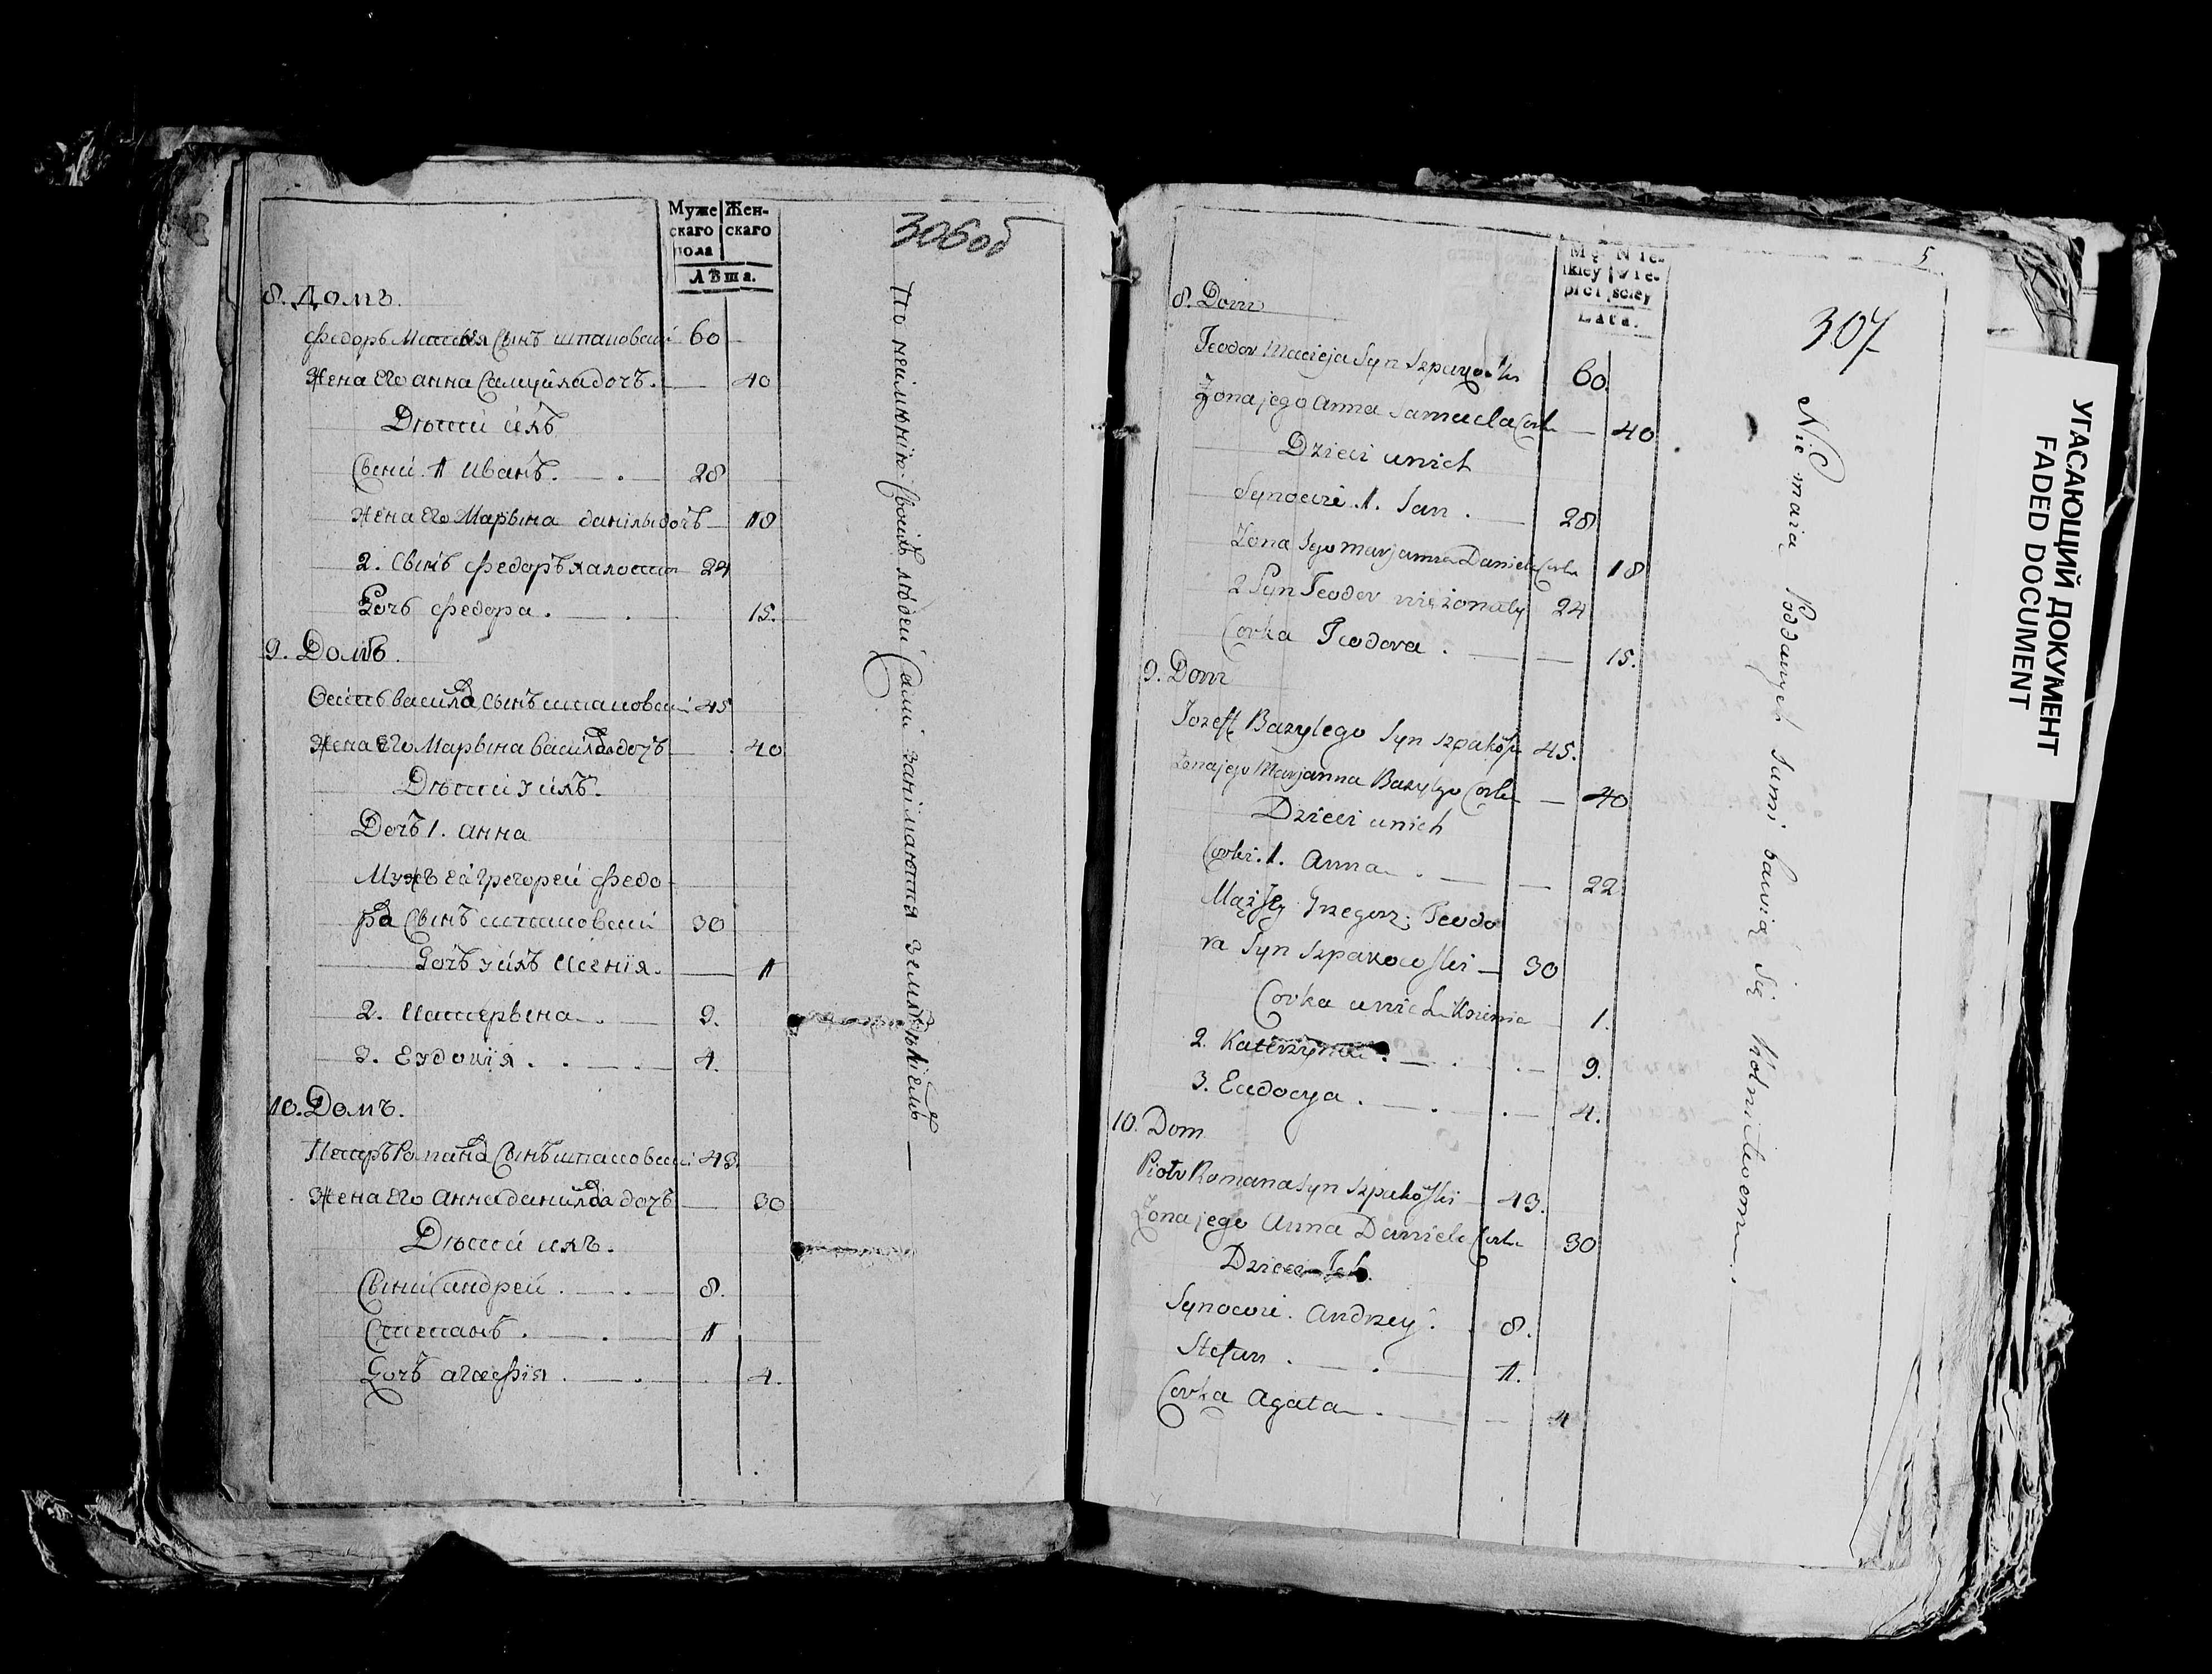 Муже Жен-
скаго скаго
пола
Лѣта.
306 об
8. Домъ.
Федоръ Матвѣя Сынъ шпаковский 60
Жена Его анна Самуйла дочъ. 40
Дѣти ихъ
Сыни. 1 Иванъ. 28
Жена Его Марьяна данилы дочъ 18
2. Сынъ Федоръ халостый 24
Дочъ Федора. 15.
9. Домъ.
Осипъ василя Сынъ шпаковский 45
Жена Его Марьяна василя дочъ 40
Дѣти у ихъ.
Дочъ 1. анна
Мужъ Еа Грегорей Федо
ра Сынъ шпаковский 30
Дочъ у ихъ Ксенія. 1
2. Катерына. 9.
3. Евдокія. 4.
10. Домъ.
Петръ Романа Сынъ шпаковский 43.
Жена Его Анна данила дочъ 30
Дѣти ихъ.
Сыни андрей. 8.
Степанъ. 1
Дочъ агафія. 4.
По неимѣнію Своихъ людей Сами занімаютця земледѣліемъ
5
Mę Nie-
skiey wie-
płci sciey
Lata.
307
8. Dom
Teodor Macieja Syn Szpakowski 60.
Żona jego Anna Samuela Corka 40
Dzieci u nich
Synowie. 1. Jan. 28
Żona Jego Marjanna Daniela Corka 18
2 Syn Teodor nieżonaty 24
Corka Teodora. 15.
9. Dom
Jozeff Bazylego Syn Szpakowski 45.
Żona jego Marjanna Bazylego Corka 40
Dzieci u nich
Corki. 1. Anna 22
Mąż Jey Grzegorz Teodo
ra Syn Szpakowski 30
Corka u nich Ksienia 1.
2. Katerzyna. 9.
3. Eudocya. 4.
10. Dom
Piotr Romana Syn Szpakowski 43.
Żona jego Anna Daniela Corka 30
Dzieci Ich.
Synowie. Andrzey. 8.
Stefan. 1.
Corka Agata. 4
Nie maią Poddanych Sami bawią się Rolnictwem.
УГАСАЮЩИЙ ДОКУМЕНТ
FADED DOCUMENT